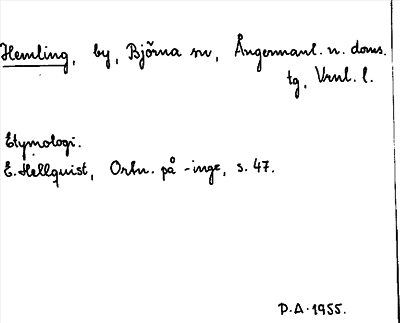 Hemling, by, Björna sn, Ångermanl. n. doms.
tg, Vrnl. l.
Etymologi.
E. Hellquist, Ortn. på -inge, s. 47.
P.A. 1955.